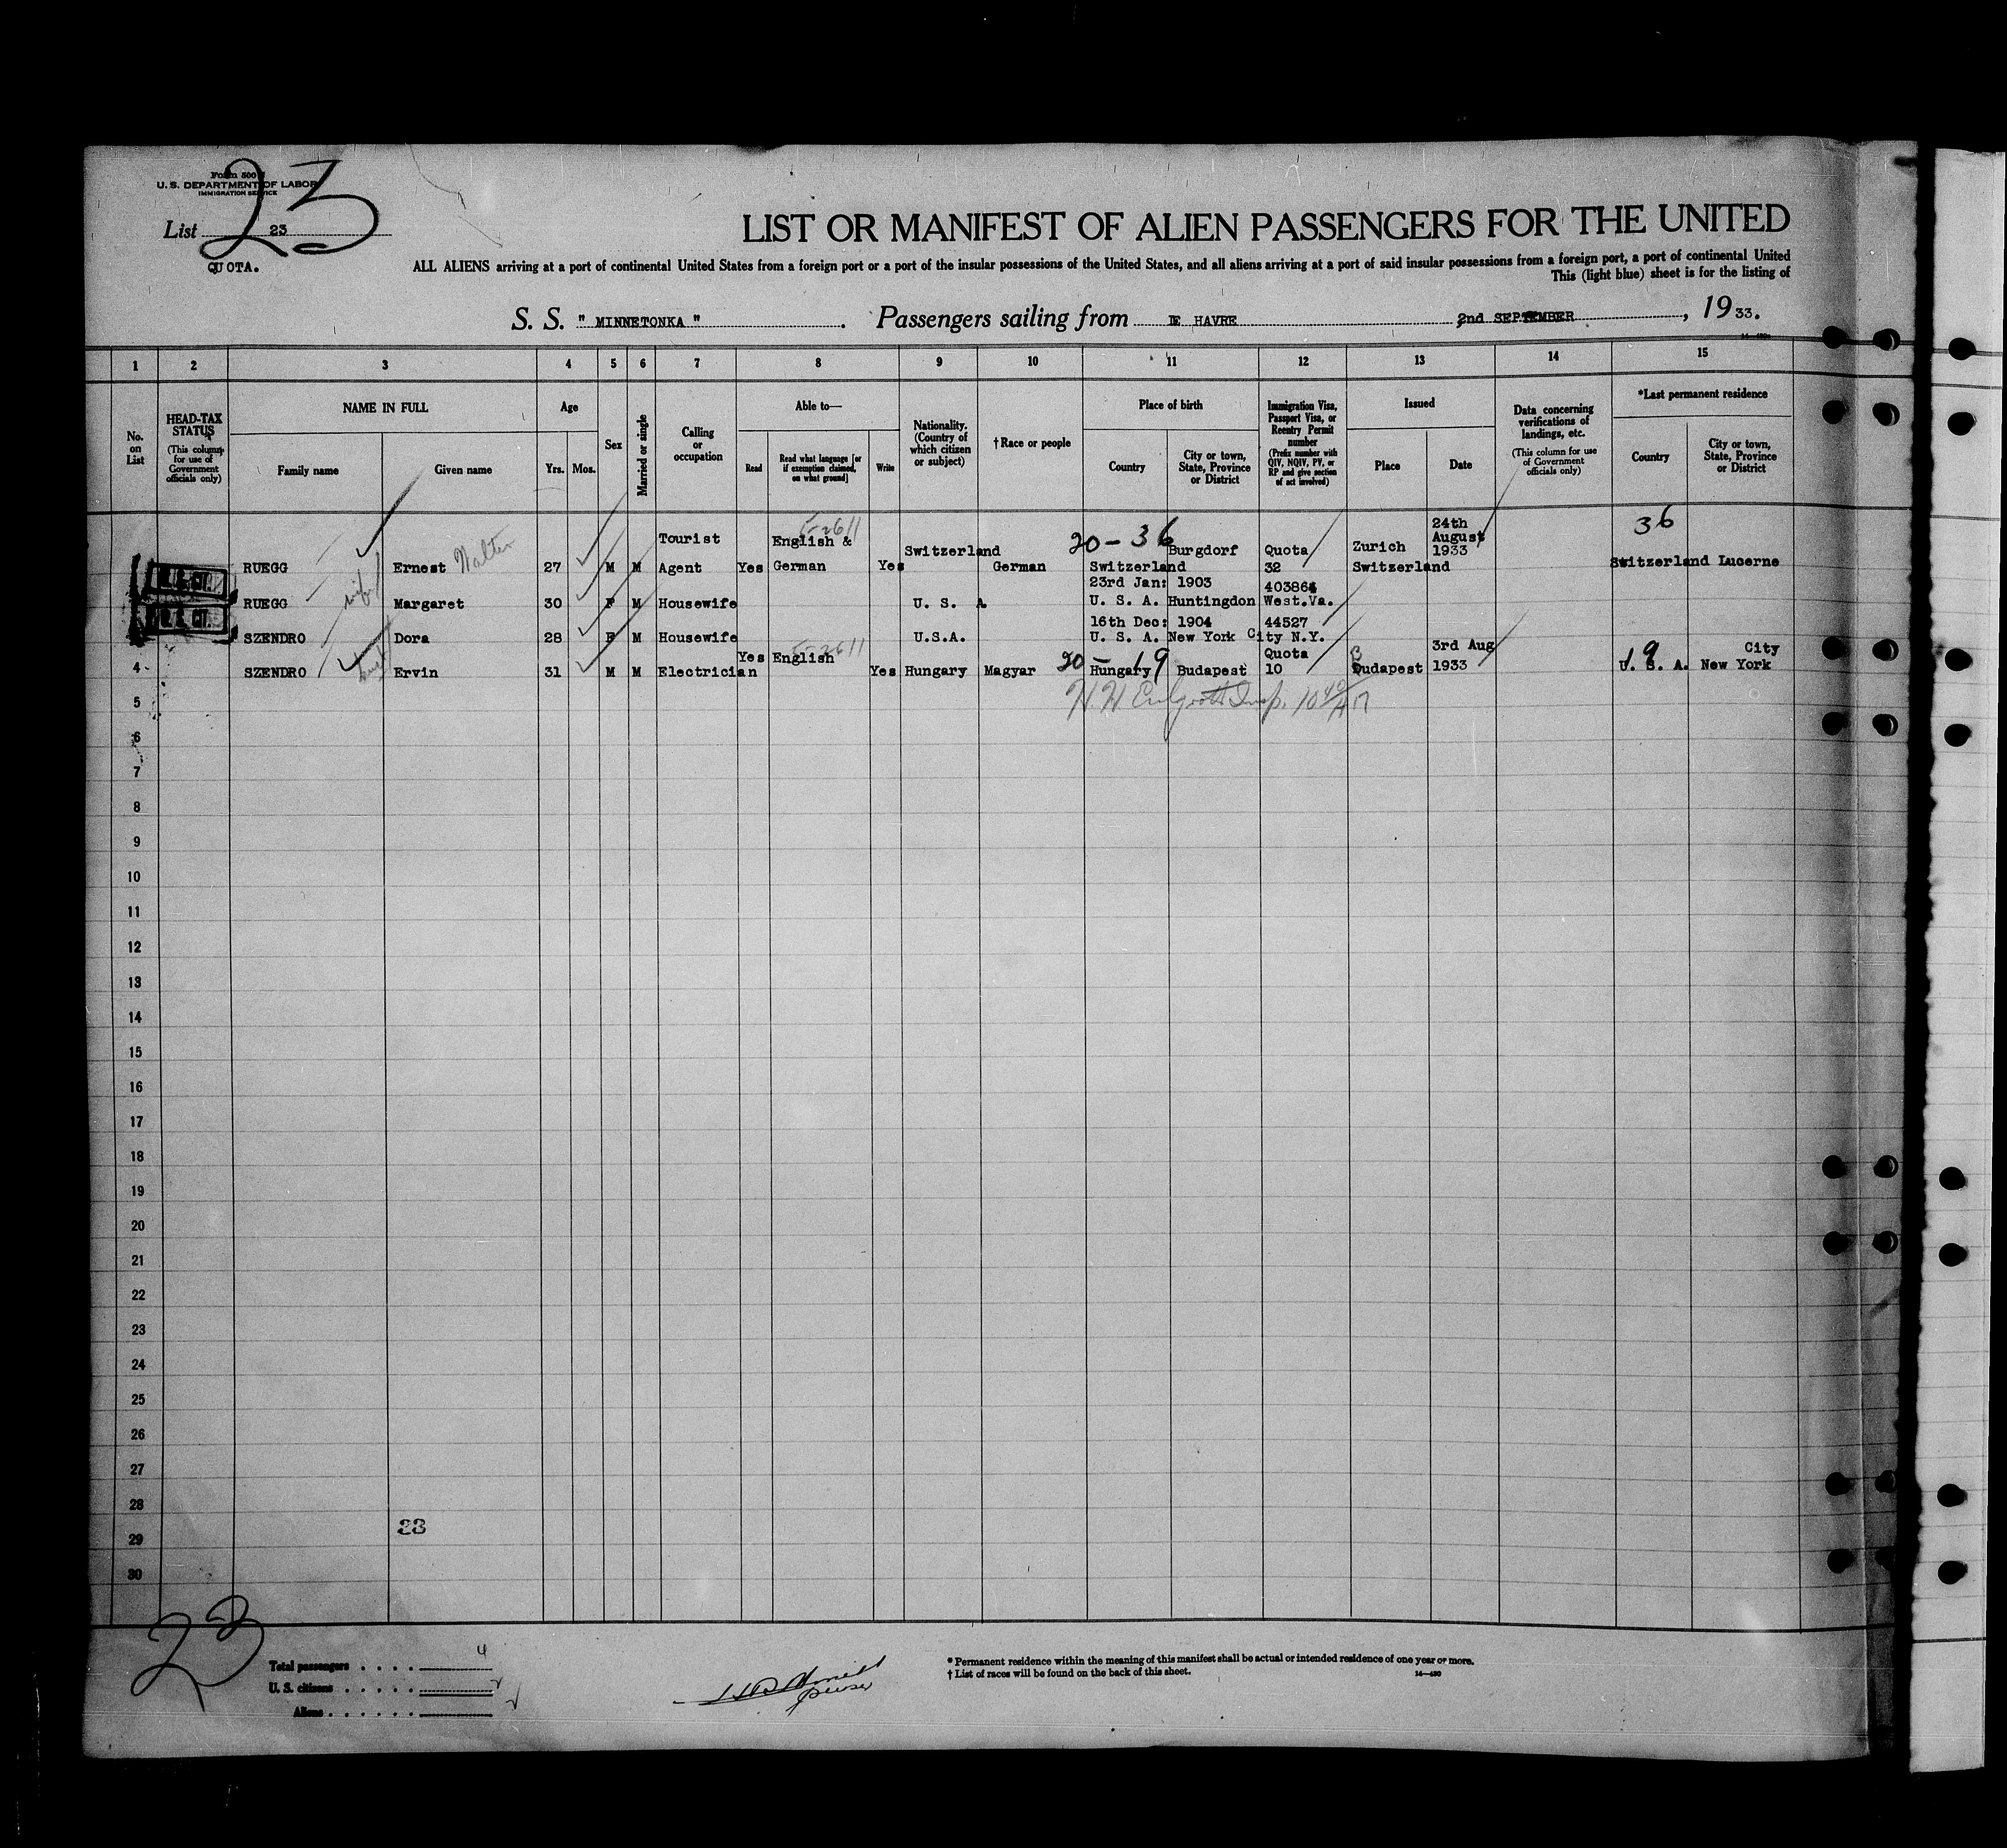 Form 500
U. S. DEPARTMENT OF LABOR
IMMIGRATION SERVICE
List 23
23
QUOTA.
LIST OR MANIFEST OF ALIEN PASSENGERS FOR THE UNITED
ALL ALIENS arriving at a port of continental United States from a foreign port or a port of the insular possessions of the United States, and all aliens arriving at a port of said insular possessions from a foreign port, a port of continental United
This (light blue) sheet is for the listing of
S. S. " MINNETONKA ". Passengers sailing from LE HAVRE 2nd SEPTEMBER, 1933.
1 2 3 4 5 6 7 8 9 10 11 12 13 14 15
No. on List
HEAD-TAX STATUS
(This column for use of Government officials only)
NAME IN FULL
Family name
Given name
Age
Yrs. Mos.
Sex
Married or single
Calling or occupation
Able to—
Read
Read what language [or if exemption claimed, on what ground]
Write
Nationality. (Country of which citizen or subject)
†Race or people
Place of birth
Country
City or town, State, Province or District
Immigration Visa, Passport Visa, or Reentry Permit number
(Prefix number with QIV, NQIV, PV, or RP and give section of act involved)
Issued
Place
Date
Data concerning verifications of landings, etc.
(This column for use of Government officials only)
*Last permanent residence
Country
City or town, State, Province or District
RUEGG Ernest Walter 27 M M Tourist Agent Yes English & German Yes Switzerland German 20-36 Burgdorf Switzerland Quota 32 Zurich Switzerland 24th August 1933 36 Switzerland Lucerne
RUEGG wife Margaret 30 F M Housewife U. S. A 23rd Jan: 1903 U. S. A. Huntingdon West.Va. 403864
SZENDRO Dora 28 F M Housewife U.S.A. 16th Dec: 1904 U. S. A. New York City N.Y. 44527
4 SZENDRO Ervin 31 M M Electrician Yes English Yes Hungary Magyar 20-19 Hungary Budapest Quota 10 Budapest 3rd Aug 1933 19 U. S. A. New York City
5
6
7
8
9
10
11
12
13
14
15
16
17
18
19
20
21
22
23
24
25
26
27
28
29
30
23
23
Total passengers . . . . 4
U. S. citizens . . . . .
Aliens . . . . . .
Purser
* Permanent residence within the meaning of this manifest shall be actual or intended residence of one year or more.
† List of races will be found on the back of this sheet.
14—480